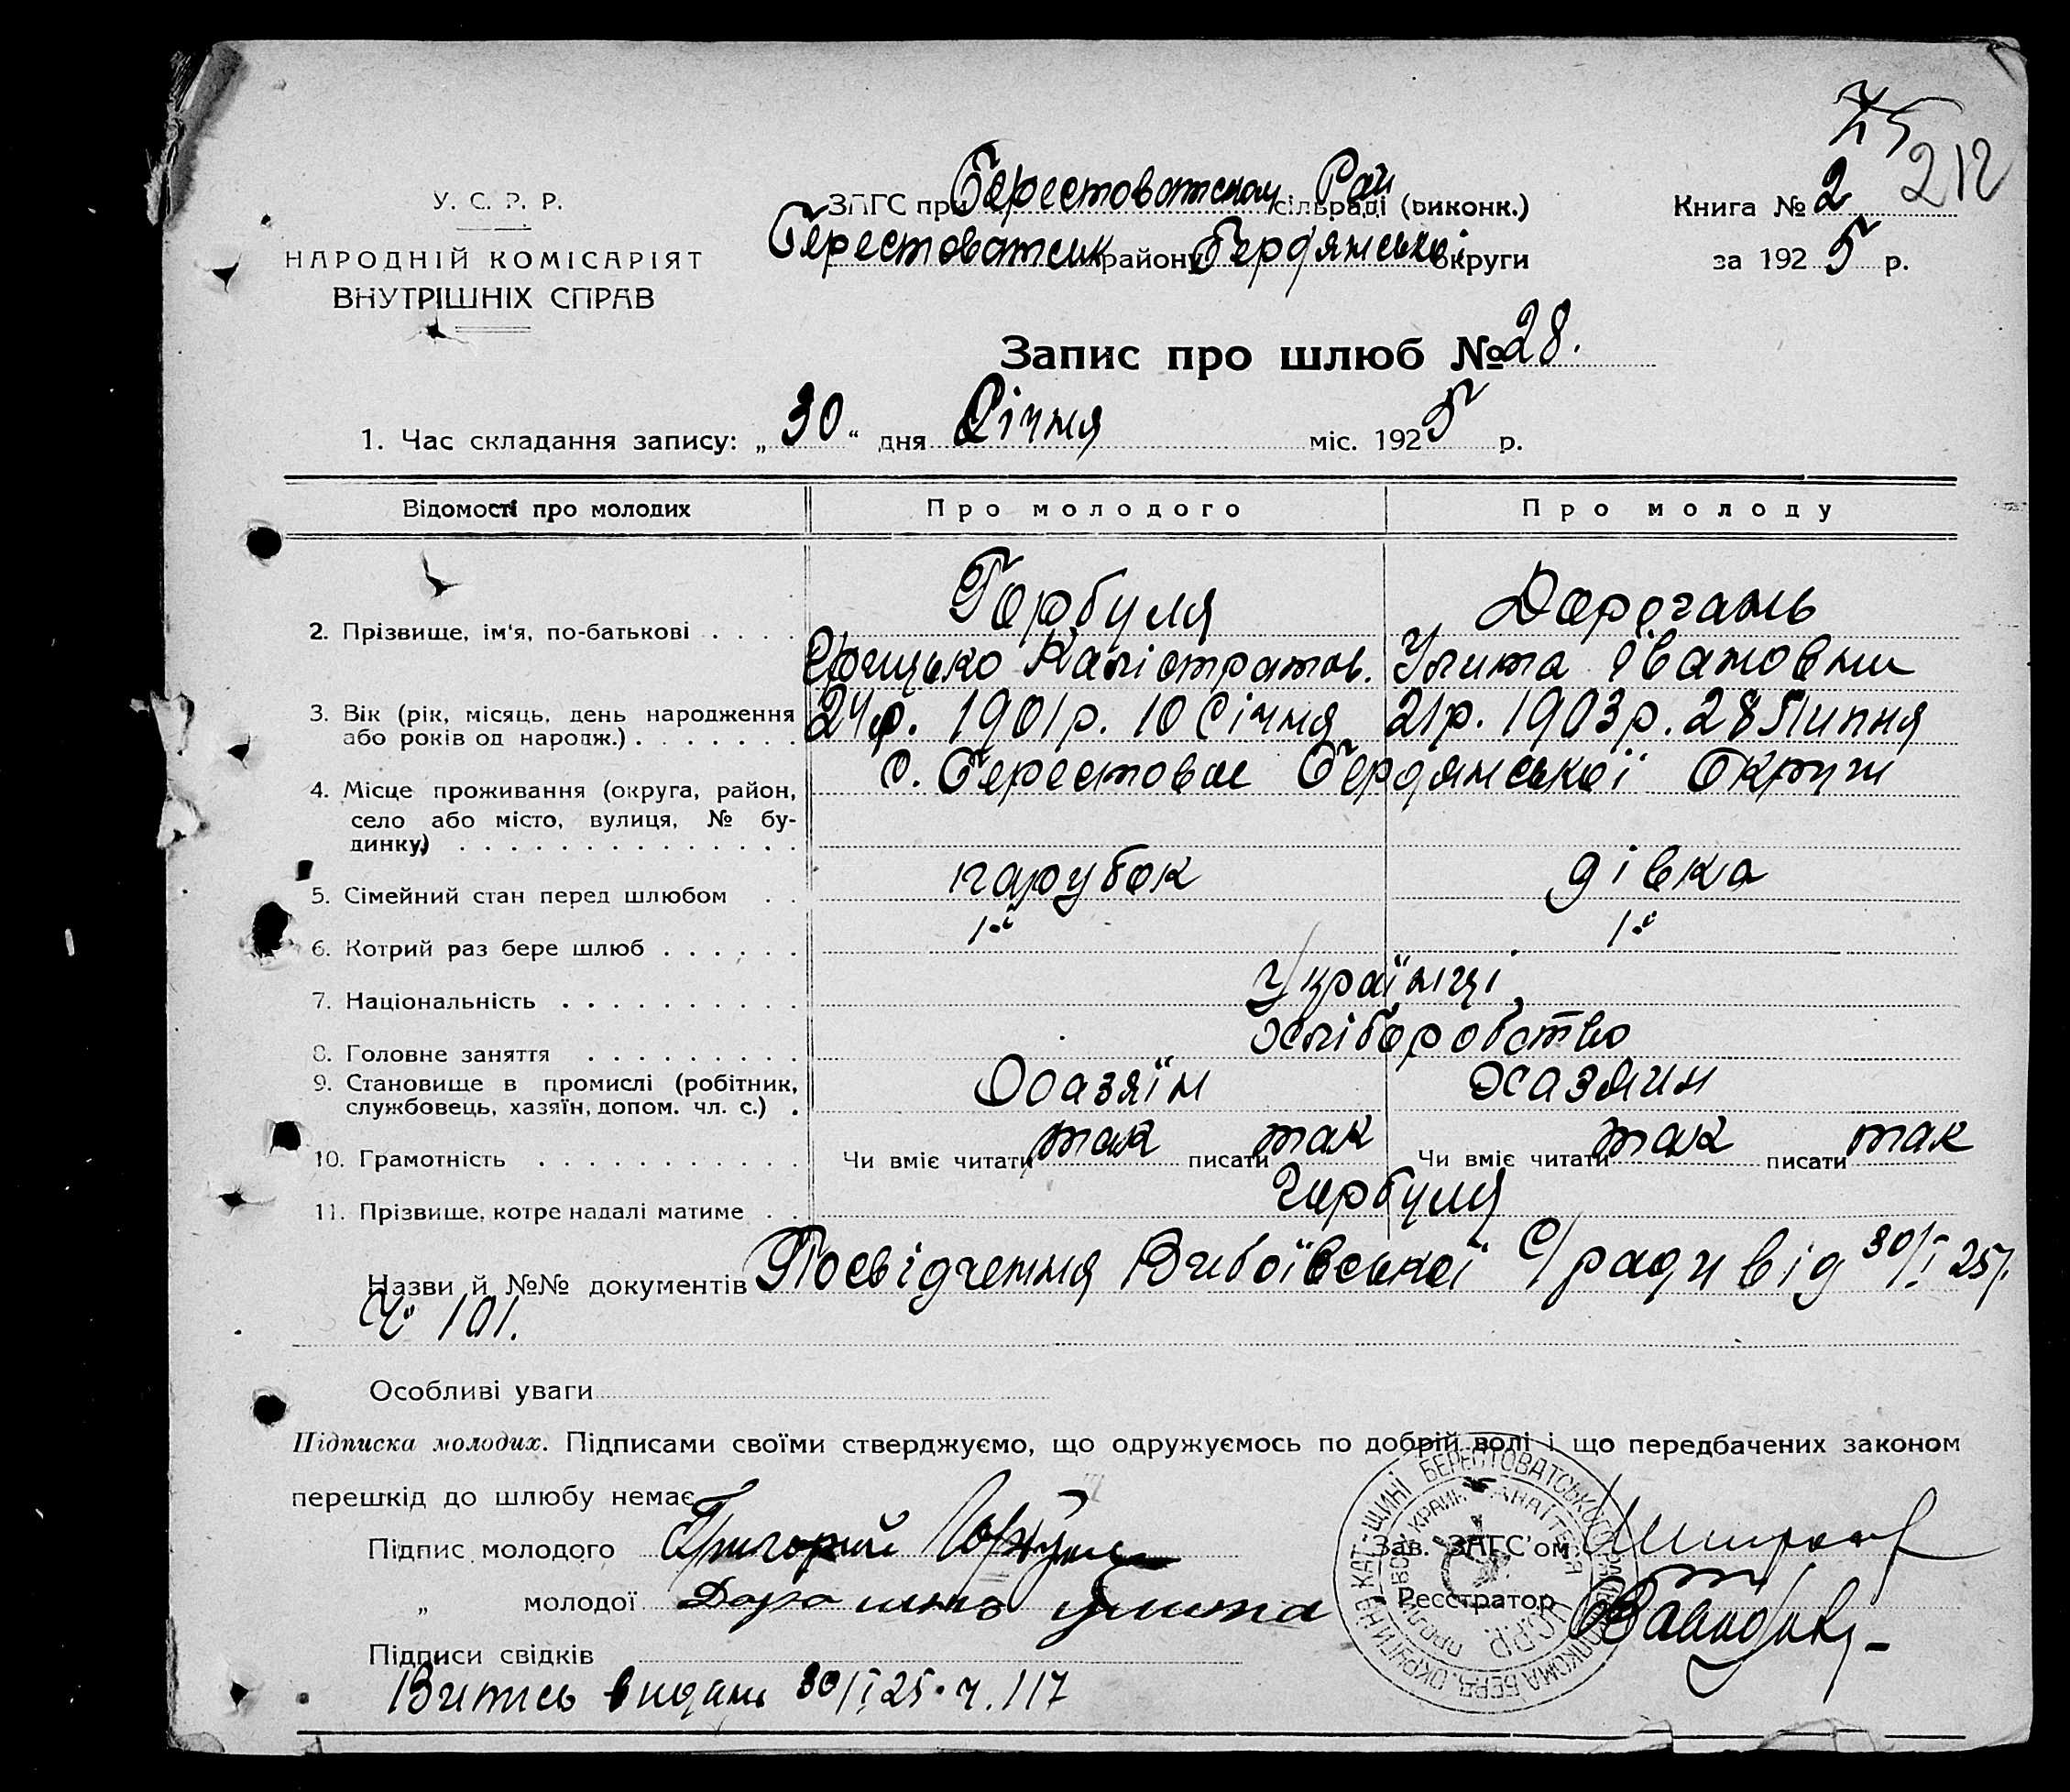 75
212
У. С. Р. Р.
НАРОДНІЙ КОМІСАРІЯТ
ВНУТРІШНІХ СПРАВ
ЗАГС при Берестоватском сільраді Рай (виконк.)
Берестоватськ району Бердянської округи
Книга № 2
за 1925 р.
Запис про шлюб № 28.
1. Час складання запису: „30“ дня Січня міс. 1925 р.
Відомості про молодих Про молодого Про молоду
Горбуля Дорогань
2. Прізвище, ім'я, по-батькові . . . .
Грицько Калістратов. Улита Івановни
3. Вік (рік, місяць, день народження 24 р. 1901 р. 10 Січня 21 р. 1903 р. 28 Липня
або років од народж.) . . . . . . .
с. Берестовае Бердянської Округи
4. Місце проживання (округа, район,
село або місто, вулиця, № бу-
динку) . . . . . . . . . . . . . .
5. Сімейний стан перед шлюбом . . парубок дівка
6. Котрий раз бере шлюб . . . . . . 1-й 1-й
7. Національність . . . . . . . . . . Українці
8. Головне заняття . . . . . . . . . Хліборобство
9. Становище в промислі (робітник, Хазяїн Хазяин
службовець, хазяїн, допом. чл. с.) .
10. Грамотність . . . . . . . . . . . Чи вміє читати так писати так Чи вміє читати так писати так
11. Прізвище, котре надалі матиме . . Горбуля
Назви й №№ документів Посвідчення Вибоївської С/ради від 30/I 25 р.
Ч. 101.
Особливі уваги
Підписка молодих. Підписами своїми стверджуємо, що одружуємось по добрій волі і що передбачених законом
перешкід до шлюбу немає
Підпис молодого Григорий Горбуля
Зав. ЗАГС'ом
„ молодої Дорогань Улита
Реєстратор
Підписи свідків
Витись видано 30/I 25. ч. 117
БЕРЕСТОВАТСЬКОГО
У.С.Р.Р.